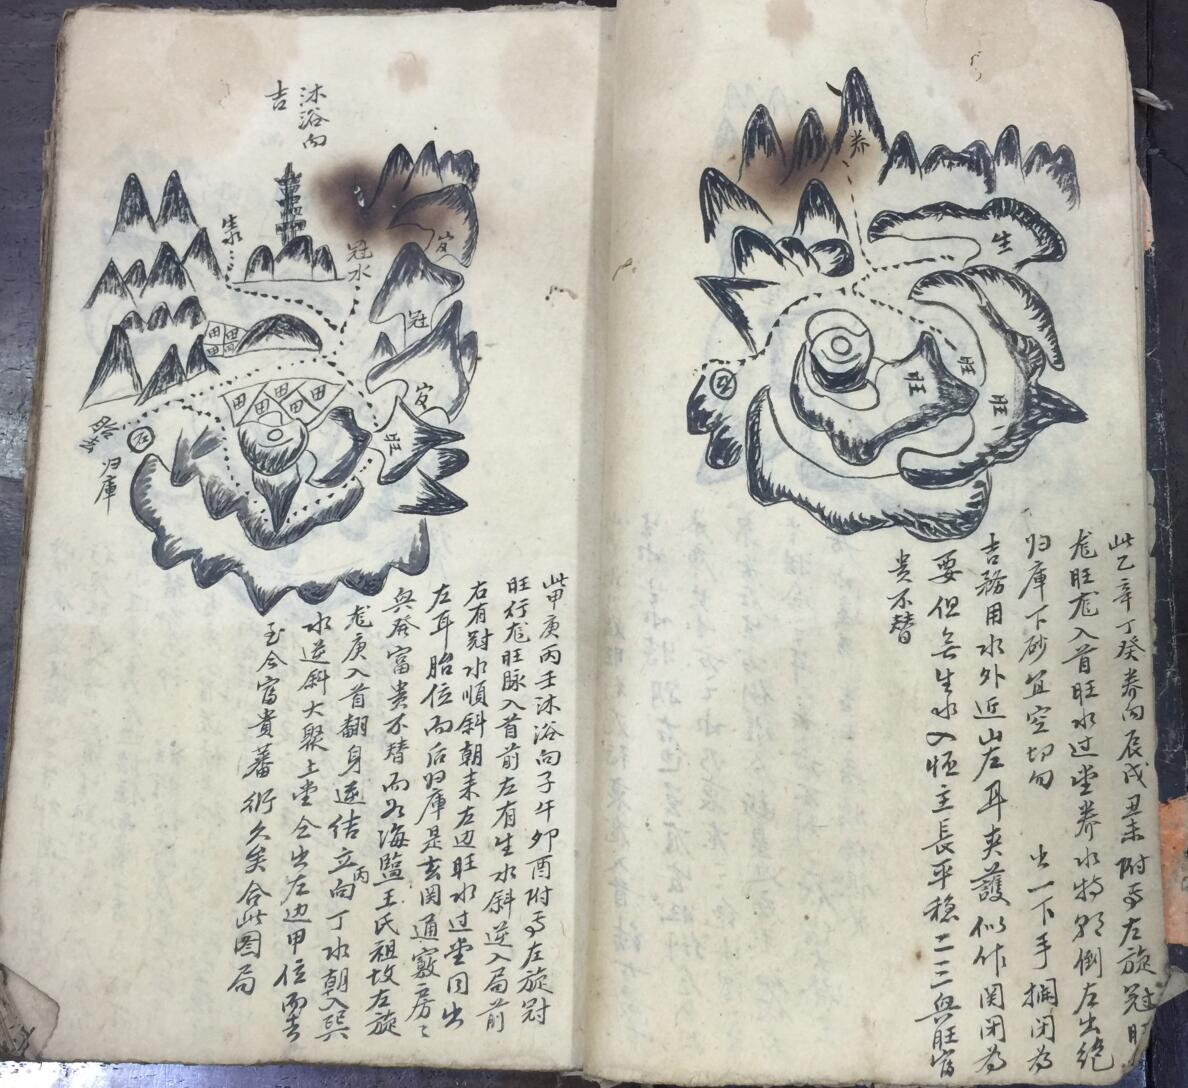 养
生
旺
旺
旺
此乙辛丁癸养向辰戌丑未附焉左旋冠旺
龙旺龙入首旺水过堂养水特朝倒左出绝
归庫下砂宜空切勿 出一下手攔闭為
吉務用水外近山左耳夹護似作関闭為
要但無生水入恒主長平稳二三興旺富
贵不替
沐浴向
吉
生水
冠水
官
冠
官
旺
田田田田
田田田田田
归庫
此甲庚丙壬沐浴向子午卯酉附焉左旋冠
旺行龙旺脉入首前左有生水斜逆入局前
右有冠水順斜朝来左边旺水过堂同出
左耳胎位而后归庫是玄関通竅房房
興發富贵不替而如海監王氏祖坟左旋
龙庚入首翻身逆结立丙向丁水朝入巽
水逆斜大聚上堂仝出左边甲位而去
至今富貴蕃衍久矣合此图局